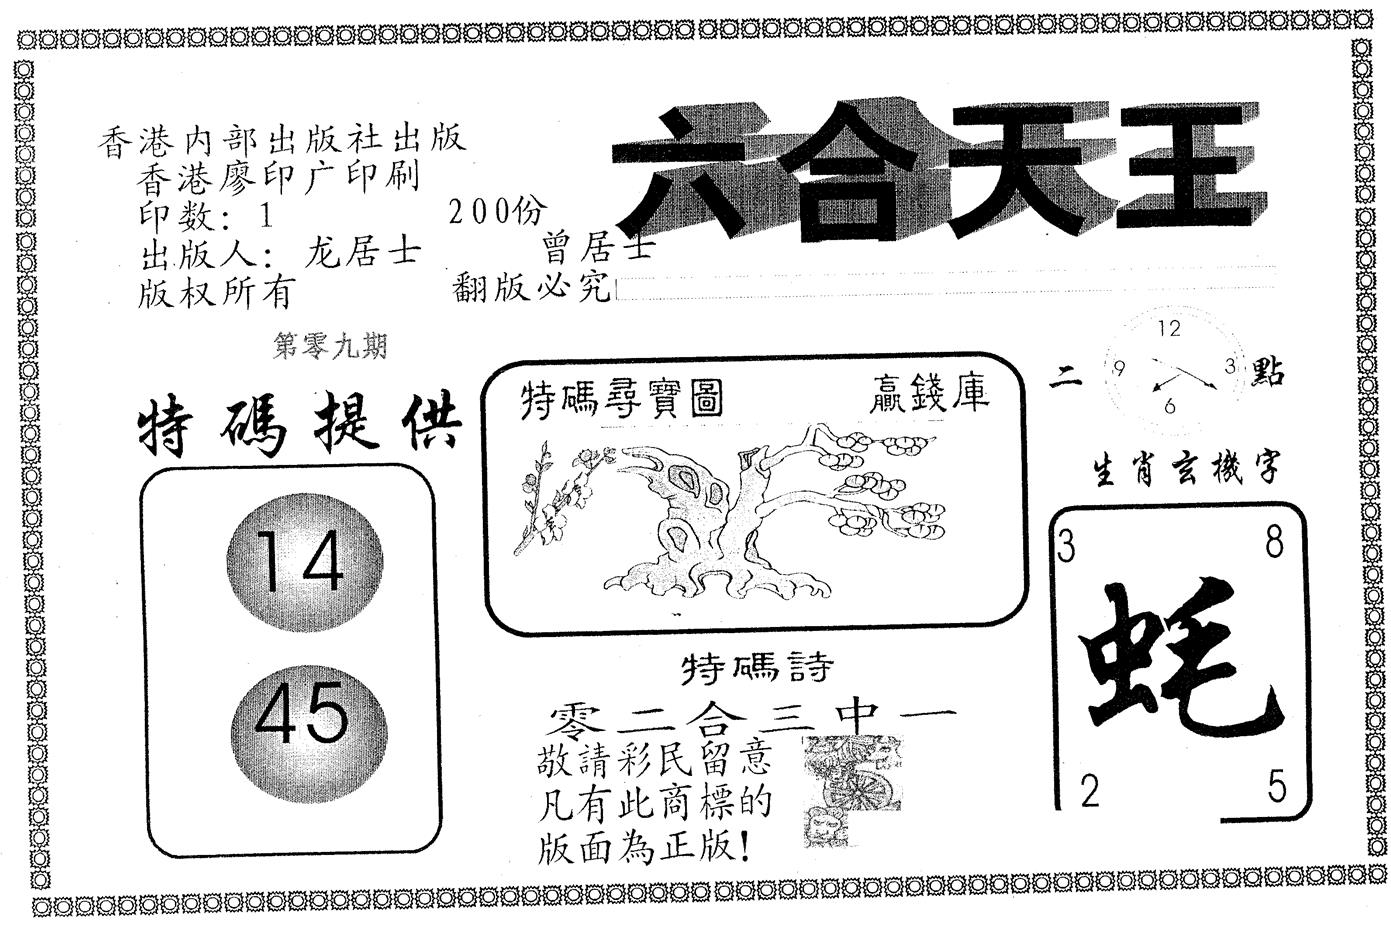 六合天王
香港内部出版社出版
香港廖印广印刷
印数: 1 200份
出版人: 龙居士 曾居士
版权所有 翻版必究
第零九期
特碼提供
14
45
特碼尋寶圖 贏錢庫
特碼詩
零二合三中一
敬請彩民留意
凡有此商標的
版面為正版!
二 12 9 3 6 點
生肖玄機字
3 8
蚝
2 5